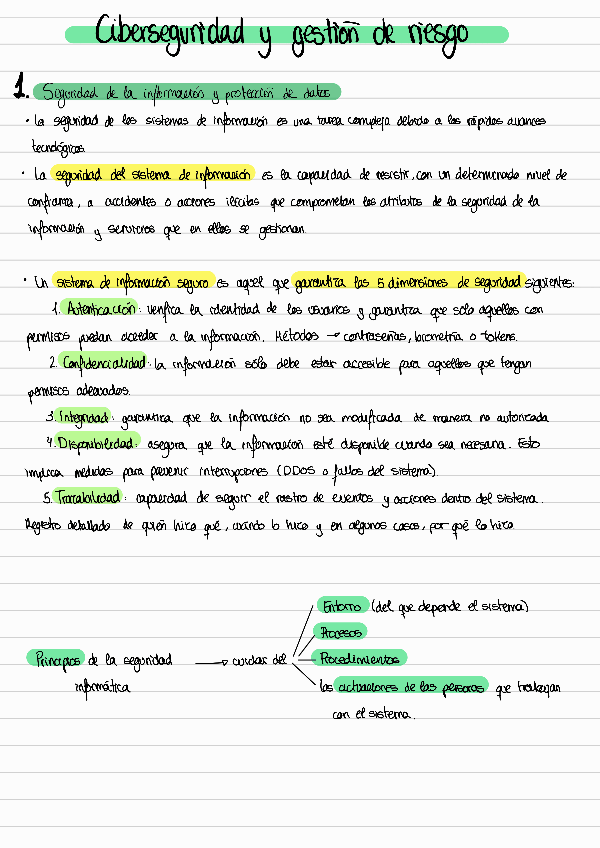 Ciberseguridad y gestión de riesgo
1. Seguridad de la información y protección de datos
· La seguridad de los sistemas de información es una tarea compleja debido a los rápidos avances
tecnológicos.
· La seguridad del sistema de información es la capacidad de resistir, con un determinado nivel de
confianza, a accidentes o acciones ilícitas que comprometan los atributos de la seguridad de la
información y servicios que en ellos se gestionan.
· Un sistema de información seguro es aquel que garantiza las 5 dimensiones de seguridad siguientes:
1. Autenticación: verifica la identidad de los usuarios y garantiza que solo aquellos con
permisos puedan acceder a la información. Métodos → contraseñas, biometría o tokens.
2. Confidencialidad: la información sólo debe estar accesible para aquellos que tengan
permisos adecuados.
3. Integridad: garantiza que la información no sea modificada de manera no autorizada
4. Disponibilidad: asegura que la información esté disponible cuando sea necesaria. Esto
implica medidas para prevenir interrupciones (DDOS o fallos del sistema).
5. Trazabilidad: capacidad de seguir el rastro de eventos y acciones dentro del sistema.
Registro detallado de quién hizo qué, cuándo lo hizo y en algunos casos, por qué lo hizo
Entorno (del que depende el sistema)
Procesos
Principios de la seguridad → cuidar del Procedimientos
informática las actuaciones de las personas que trabajan
con el sistema.